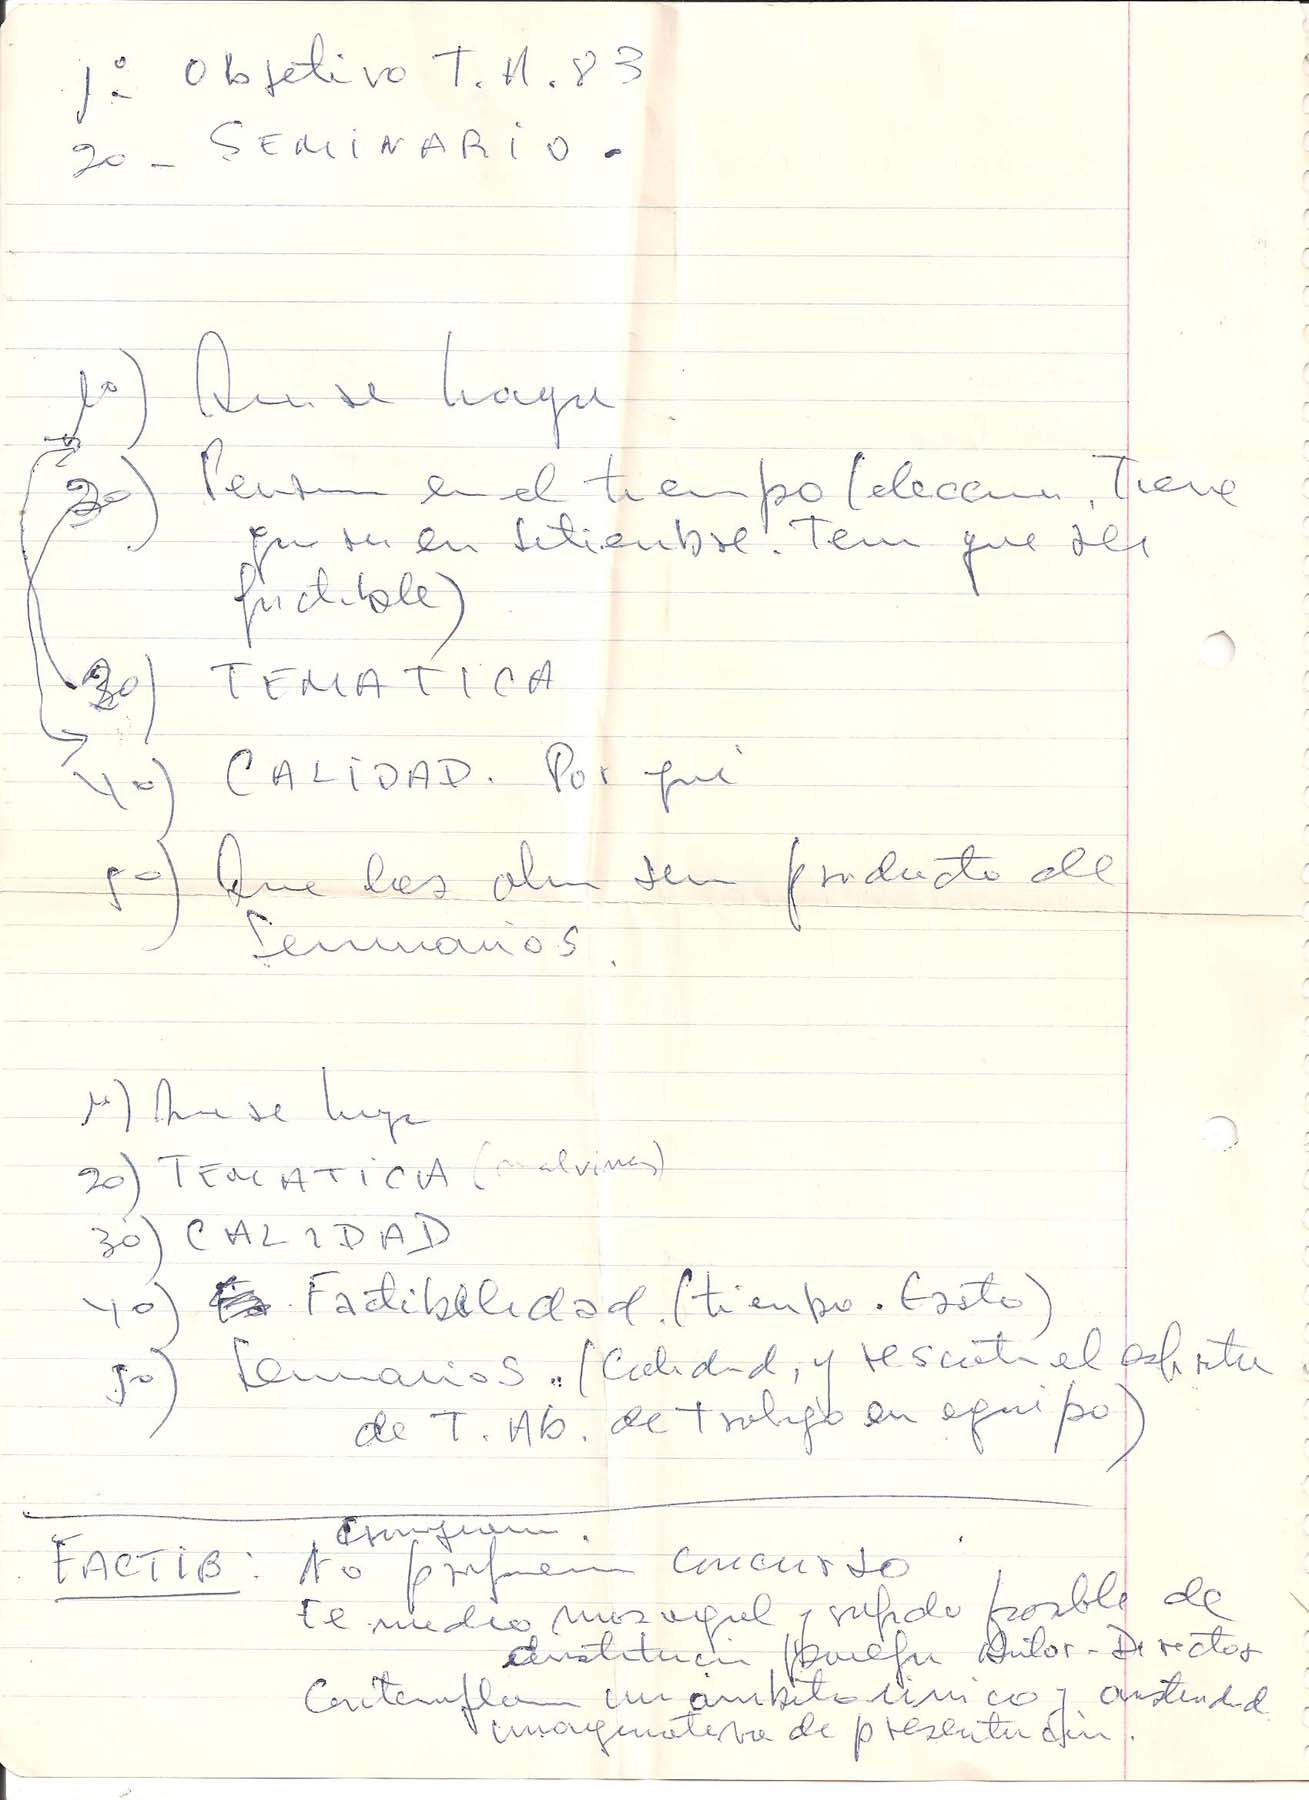 1º- Objetivo T.A. 83
2o- SEMINARIO.
1o) Que se haga
2o) Pensar en el tiempo (elecciones. Tiene
que ser en setiembre. Tiene que ser
factible)
3o) TEMATICA
4o) CALIDAD. Por qué
5o) Que las obras sean producto de
Seminarios.
1o) Que se haga
2o) TEMATICA (malvinas)
3o) CALIDAD
4o) Factibilidad (tiempo. Gasto)
5o) Seminarios. (Calidad, y rescata el espíritu
de T. Ab. de trabajo en equipo)
FACTIB: No concurso
posible de
Autor-Director
un ámbito único y austeridad
imaginativa de presentación.